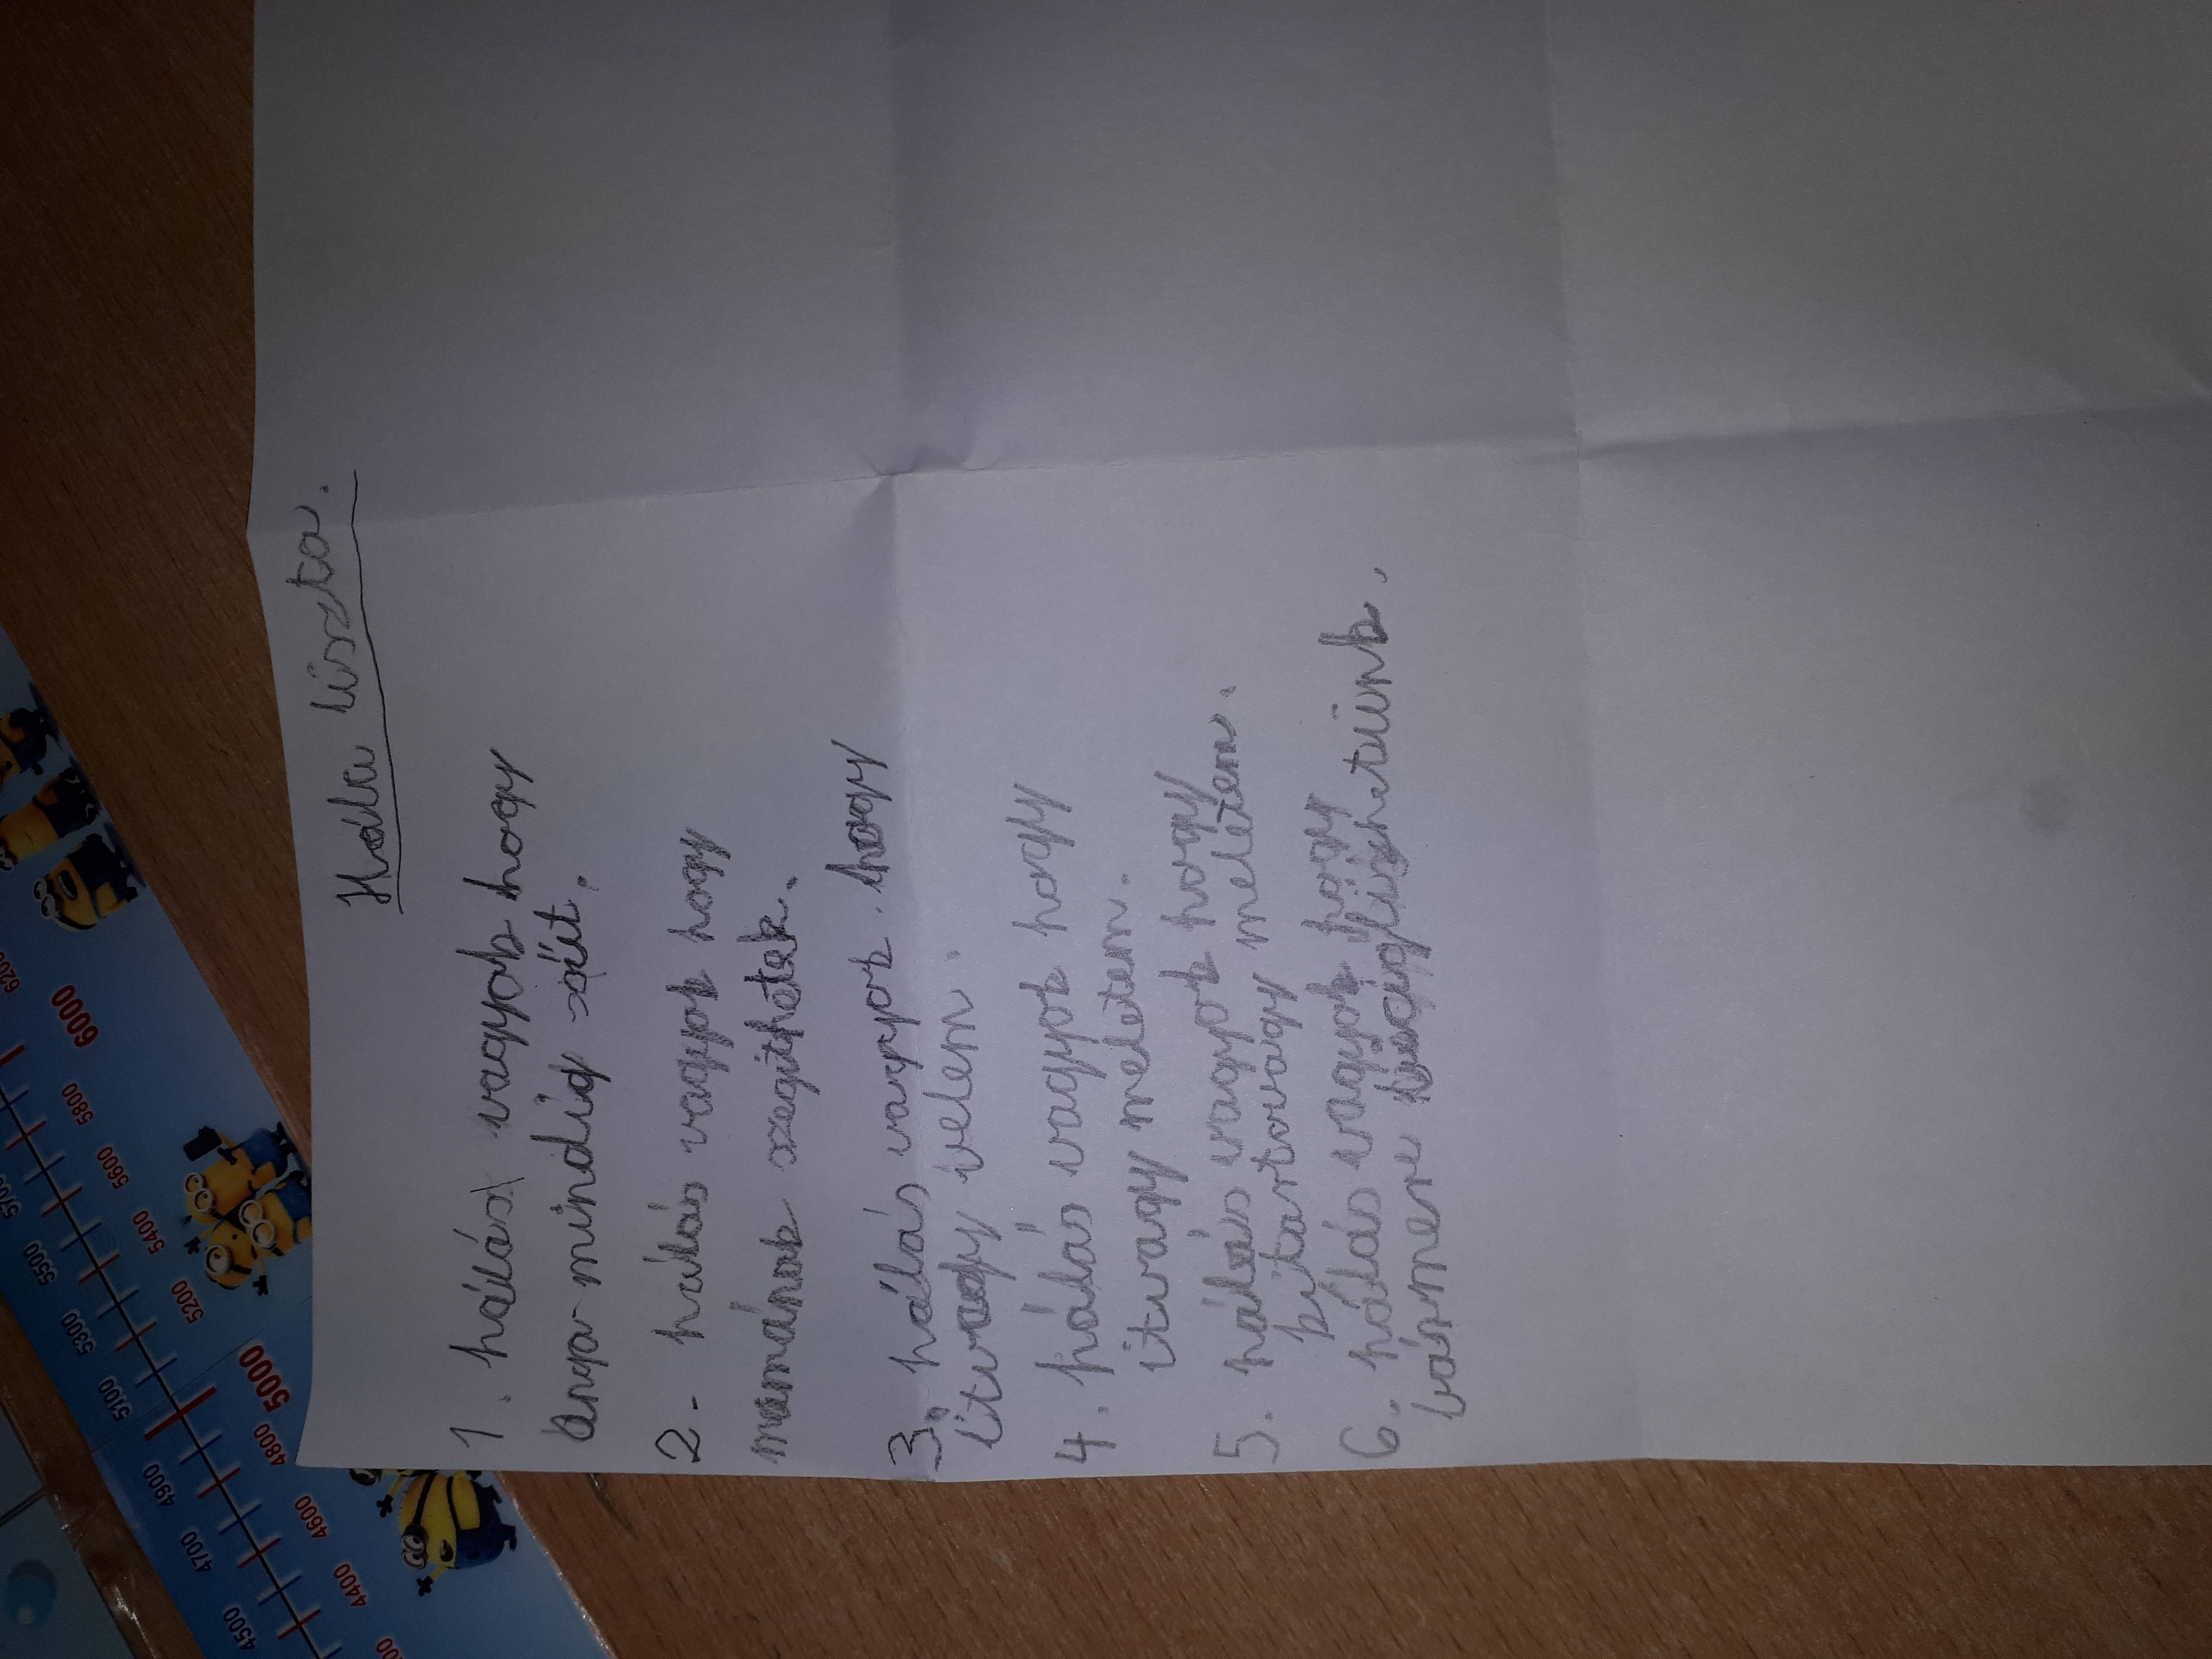 Hála liszta.
1. hálás vagyok hogy
anya mindig süt.
2. hálás vagyok hogy
mamának szegithetek.
3. hálás vagyok. hogy
itvagy velem.
4. hálás vagyok hogy
itvagy meletem.
5. hálás vagyok hogy
kitartovagy meletem.
6. hálás vagyok hogy
básmere
4500
4700
4900
5100
5300
5500
4400
4600
4800
5000
5200
5400
5600
5800
6000